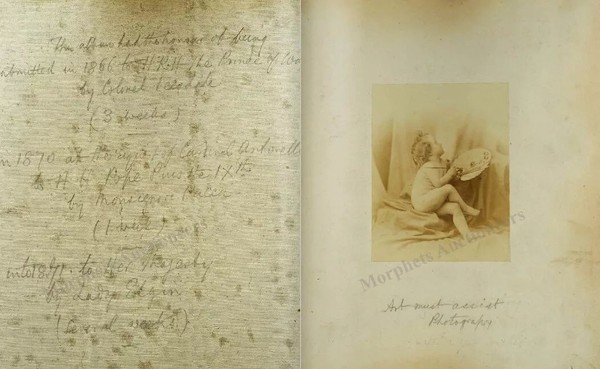 This album had the honour of being
submitted in 1866 to H.R.H the Prince of Wa
by Colonel Teesdale
(3 weeks)
in 1870 at the request of Cardinal Antonelli
to H. H. Pope Pius the IXth
by Monsignore
(1 week)
in 1871. to Her Majesty
by Lady
(Several weeks)
Art must assist
Photography
Morphets Auctioneers
Morphets Auctioneers